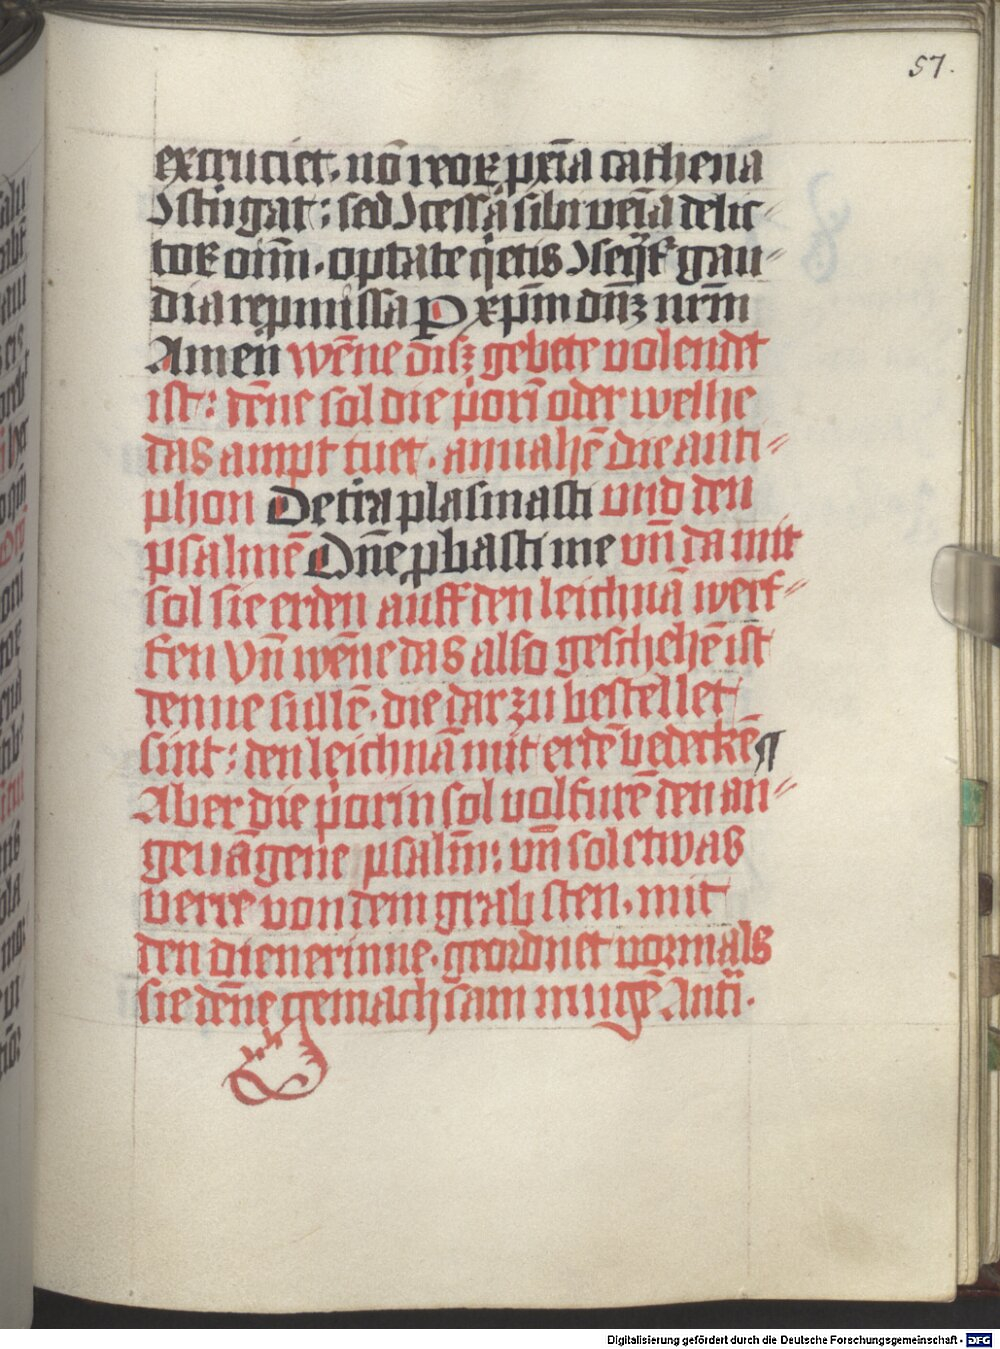 57.
excruciet. nō reoꝝ pxīa cathena
Istīgat: sed Icessā sibi ueīa delic⸗
toꝝ oīm. optate q̇etis Iseq̇t̄ gau⸗
dia repmissa P xpm̄ dn̄ꝫ nrm̄
Amen wēne disz gebete volendet
ist: dēne sol die p̈ori oder welhe
das ampt tuet. anuahē die anti⸗
phon De tīra plasmasti und den
psalmē Dn̄e ꝓbasti me vn̄ da mit
sol sie erden auff den leichnā werf⸗
fen Vn̄ wēne das also geschehē ist
denne sullē. die dar zu bestellet
sint: den leichnā mit erdē bedeckē ¶
Aber die p̈orin sol volfurē den an⸗
geuāgene psalm̄: vn̄ sol etwas
verre von dem grab sten. mit
den dienerinne. geordnet vormals
sie dēne gemachsam mugē Anti.
Digitalisierung gefördert durch die Deutsche Forschungsgemeinschaft - DFG